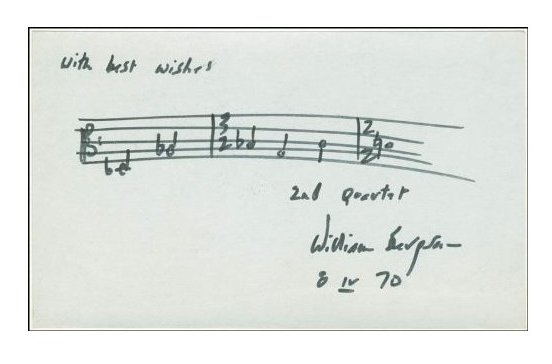 With best wishes
3 2
2 2
2nd Quartet
William Bergsma
8 IV 70